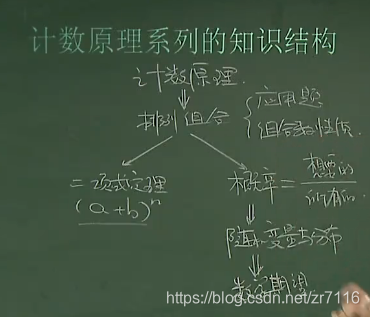 计数原理系列的知识结构
计数原理.
排列组合
应用题
组合数的性质.
二项式定理
(a+b)ⁿ
概率=想要的/所有的
随机变量与分布
数学期望.
https://blog.csdn.net/zr7116